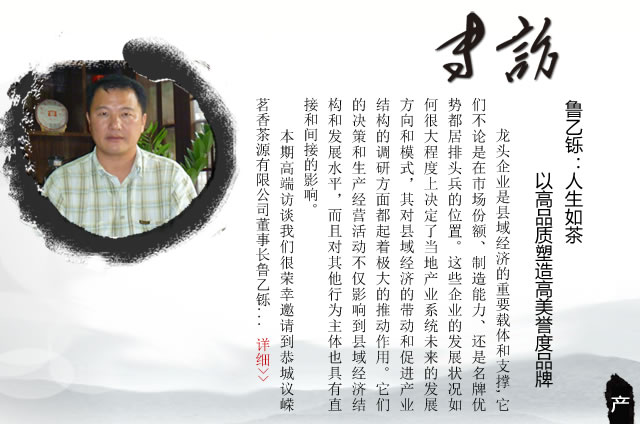 专访
鲁乙铄：人生如茶
以高品质塑造高美誉度品牌
龙头企业是县域经济的重要载体和支撑,它
们不论是在市场份额、制造能力、还是名牌优
势都居排头兵的位置。这些企业的发展状况如
何很大程度上决定了当地产业系统未来的发展
方向和模式，其对县域经济的带动和促进产业
结构的调研方面都起着极大的推动作用。它们
的决策和生产经营活动不仅影响到县域经济结
构和发展水平，而且对其他行为主体也具有直
接和间接的影响。
本期高端访谈我们很荣幸邀请到恭城议嵘
茗香茶源有限公司董事长鲁乙铄... 详细>>
产